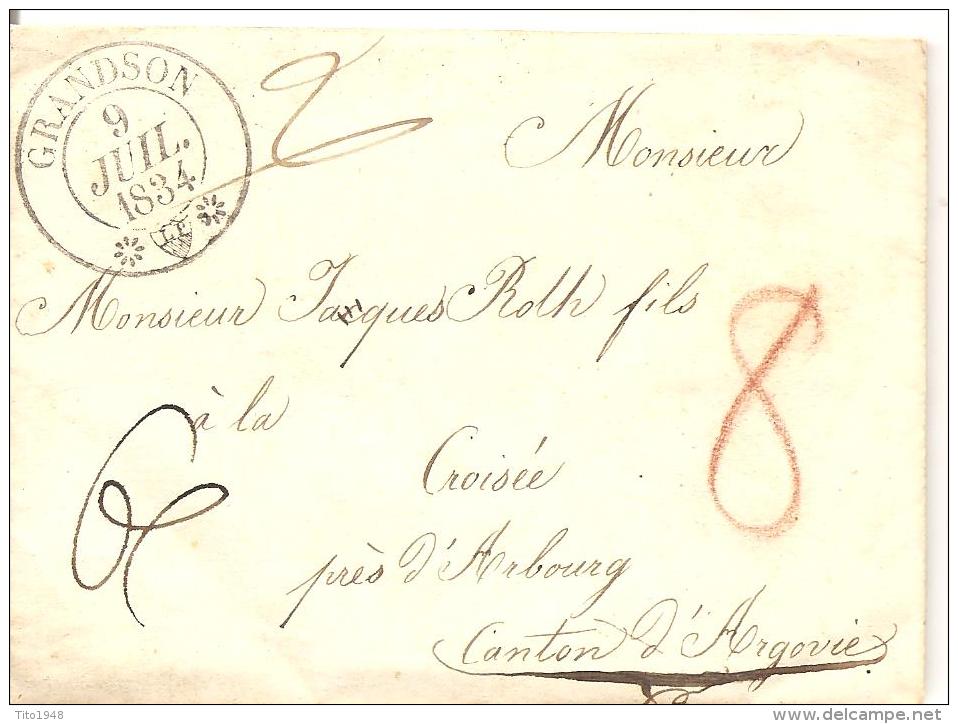 GRANDSON
9
JUIL.
1834
2
Monsieur
Monsieur Jacques Roth fils
à la
Croisée
près d'Arbourg
Canton d'Argovie
8
Tito1948
delcampe.net